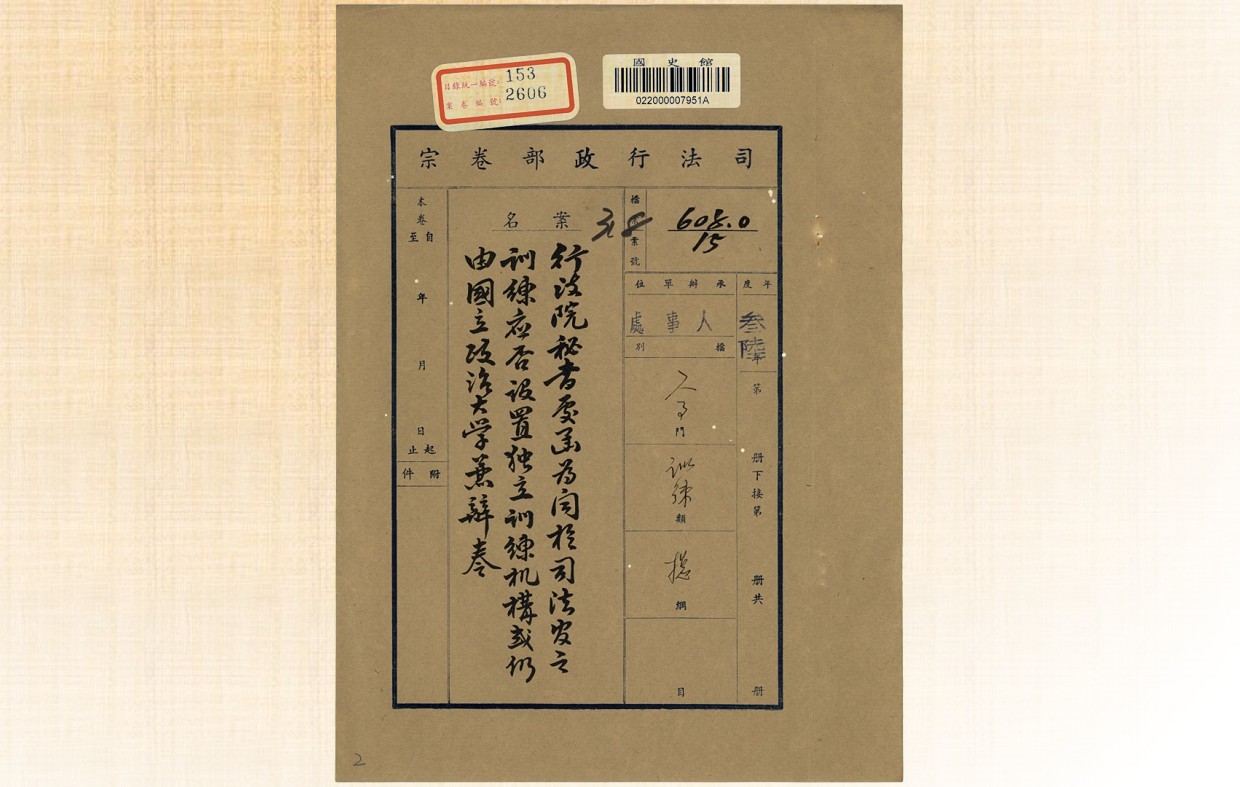 目錄統一編號: 153
案卷編號: 2606
國史館
022000007951A
司法行政部卷宗
檔案號
608.0
15
38
年度
叁陸年
第 册下接第 册共 册
承辦單位
人事處
檔別
人事門
訓練類
總綱
目
案名
行政院秘書處函為関於司法官之
訓練应否設置独立訓練机構或仍
由國立政治大学兼辦奏
本卷
自 年 月 日起
至 止
附件
2